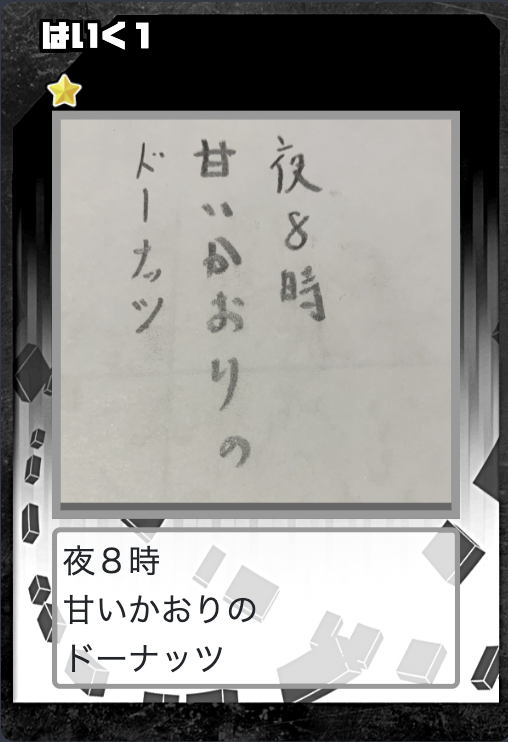 はいく1
夜8時
甘いかおりの
ドーナッツ
夜８時
甘いかおりの
ドーナッツ